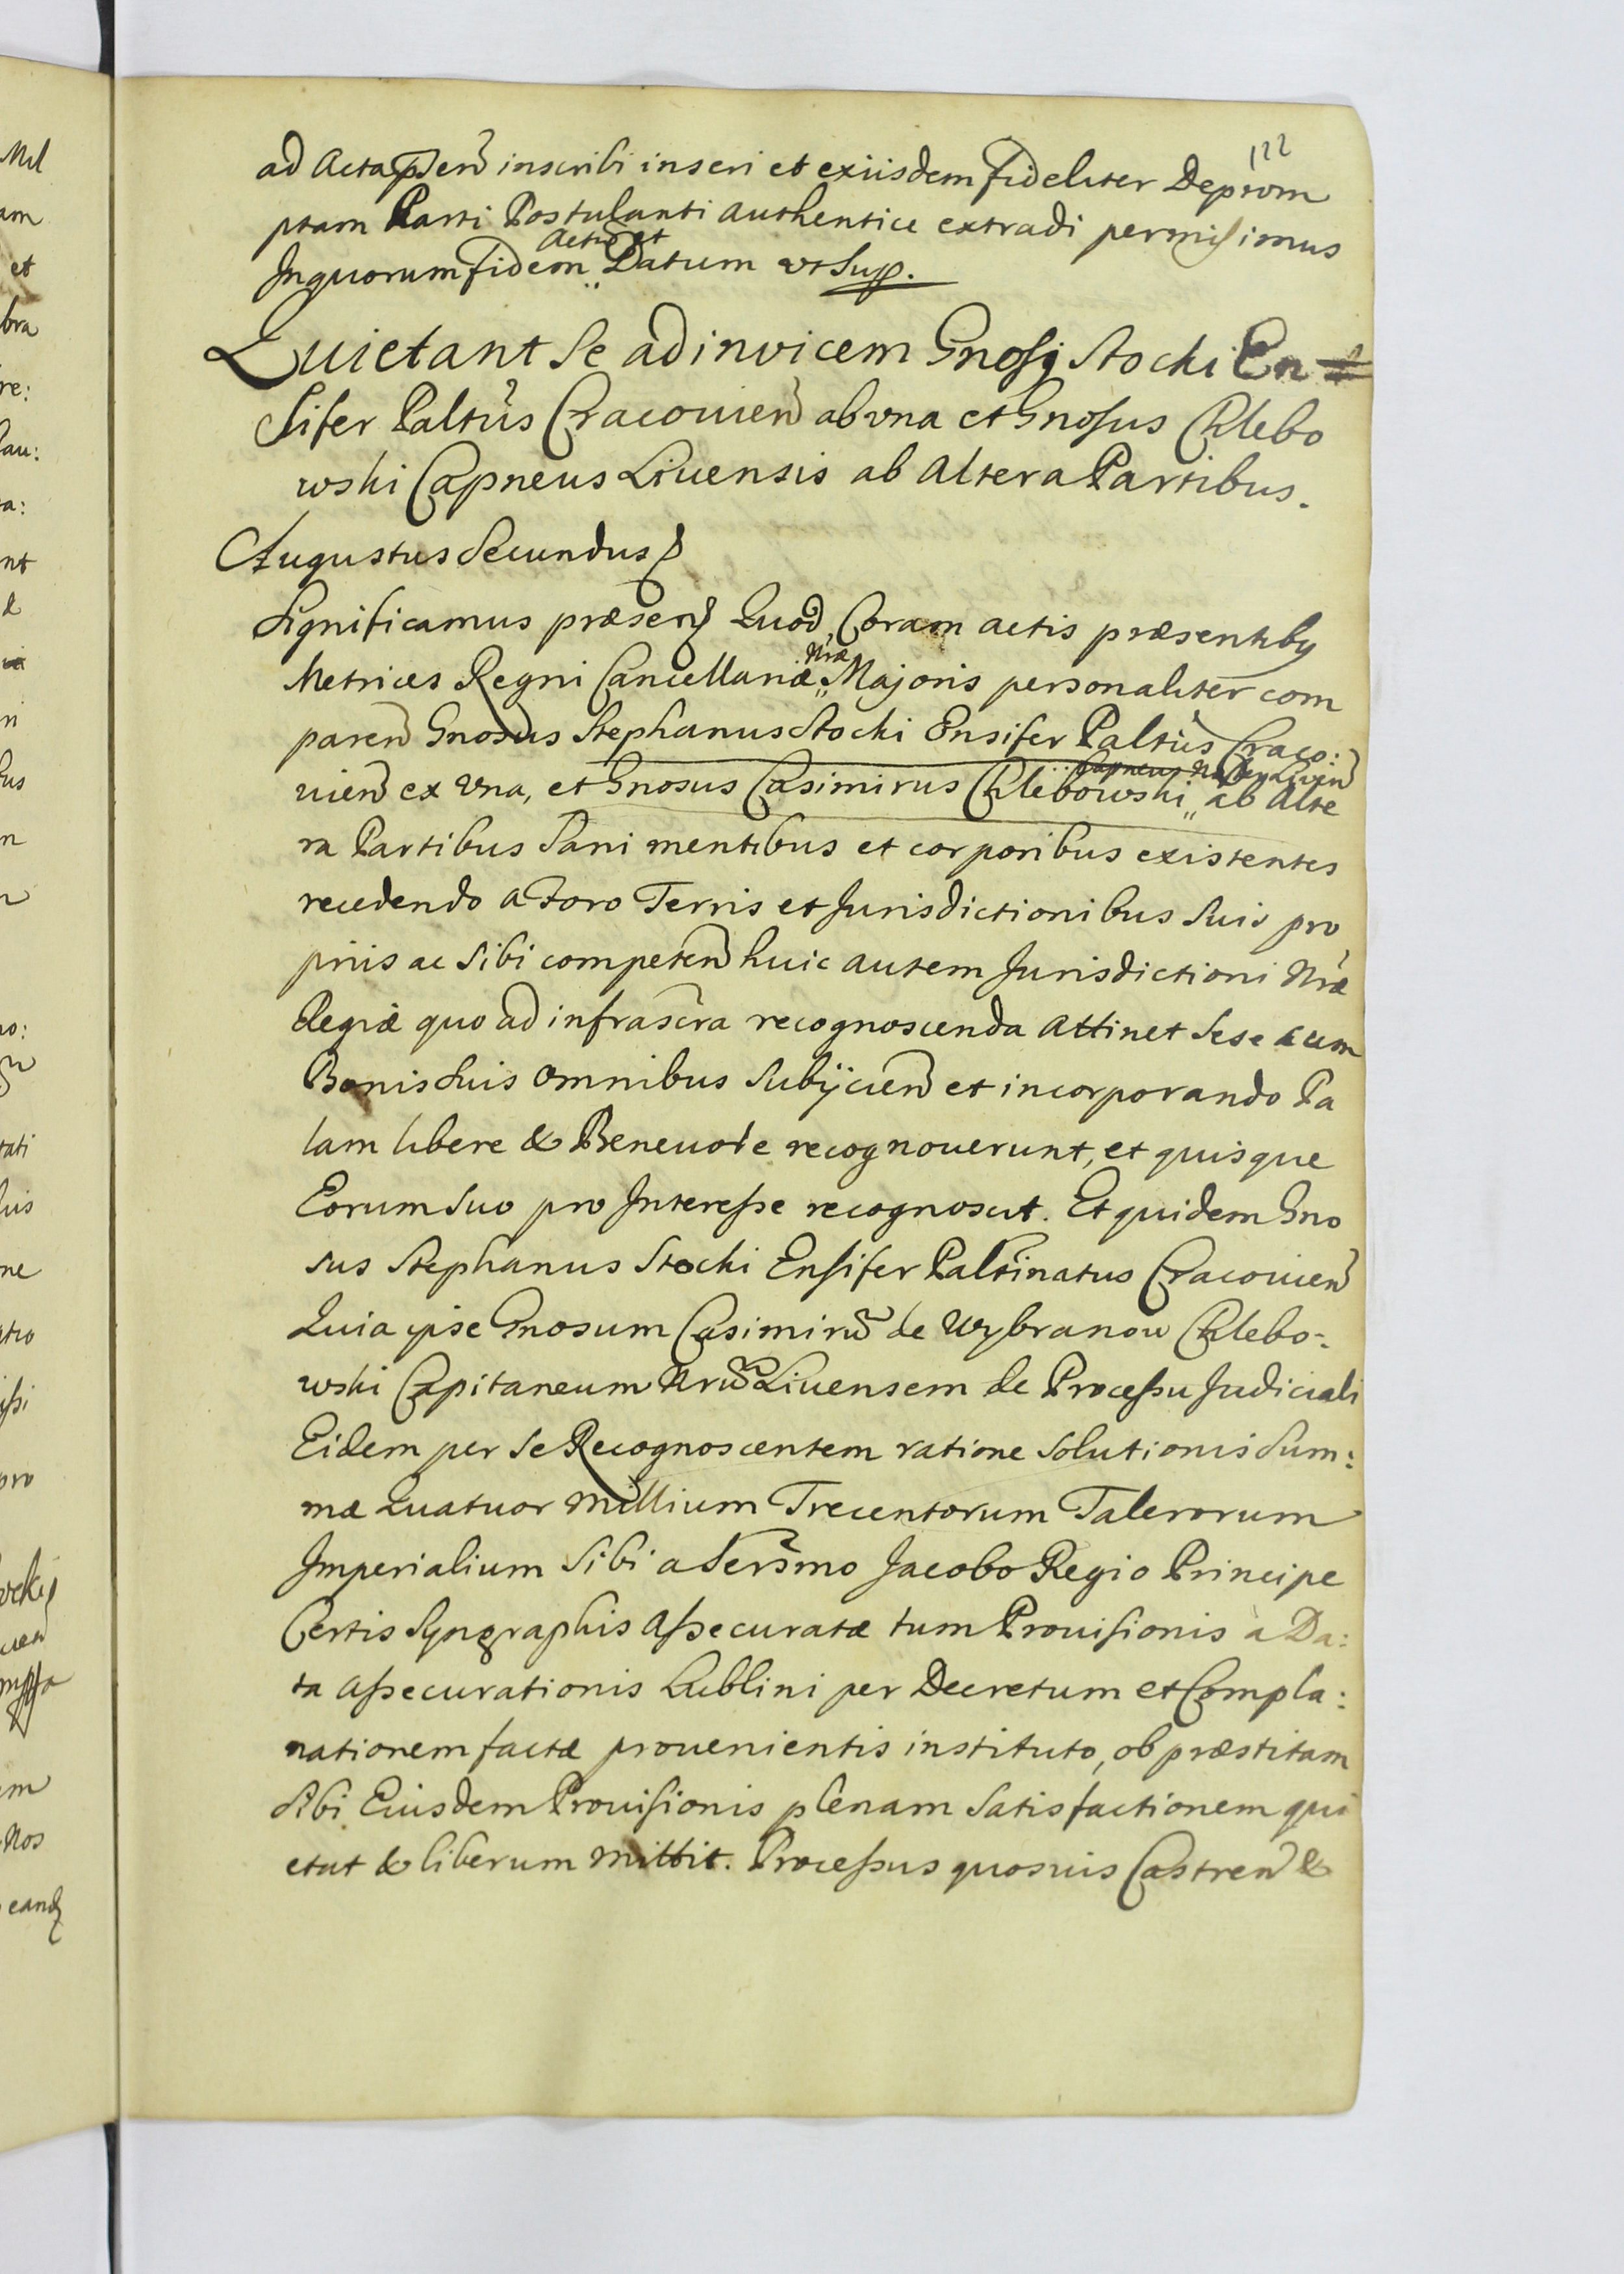 122
ad Acta p̄sen̄ inscribi inseri et exiisdem fideliter Deprom
ptam Parti Postulanti authentice extradi permisimus
In quorum fidem Actū et Datum ut Sup.
Quietant Se ad invicem Gnosi Stocki En
sifer Paltūs Cracouien̄ ab una et Gnosus Chlebo
wski Capneus Liuensis ab Altera Partibus.
Augustus Secundus
Significamus præsen Quod Coram actis præsentiby
Metrices Regni Cancellariæ Nræ Majoris personaliter com
paren̄ Gnosus Stephanus Stocki Ensifer Paltūs Craco:
uien̄ ex una, et Gnosus Casimirus Chlebowski Capneus Liuen̄ ab Alte
ra Partibus Sani mentibus et corporibus existentes
recedendo a Foro Terris et Jurisdictionibus Suis pro
priis ac Sibi competen̄ huic autem Jurisdictioni Nræ
Regiæ quo ad infrascra recognoscenda Attinet Sese cum
Bonis Suis Omnibus Subijcien̄ et incorporando Pa
lam libere & Beneuole recognouerunt, et quisque
Eorum Suo pro Interesse recognoscit. Et quidem Gno
sus Stephanus Stocki Ensifer Paltinatus Cracouien̄
Quia ipse Gnosum Casimirū de Wybranow Chlebo-
wski Capitaneum Nrū Liuensem de Processu Judiciali
Eidem per Se Recognoscentem ratione Solutionis Sum:
mæ Quatuor Millium Trecentorum Talerorum
Imperialium Sibi a Sersmo Jacobo Regio Principe
Certis Syngraphis Assecuratæ tum Prouisionis à Da:
ta assecurationis Lublini per Decretum et Compla:
nationem factæ prouenientis instituto, ob præstitam
Sibi Eiusdem Prouisionis plenam Satisfactionem qui
etat & liberum Mittit. Processus quosuis Castren̄ &